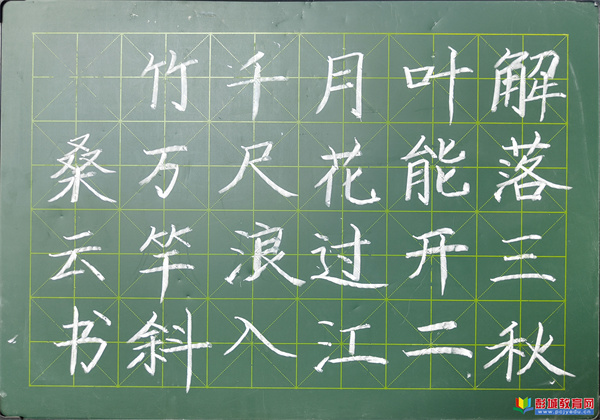 解落三秋
叶能开二
月花过江
千尺浪入
竹万竿斜
桑云书
彭城教育网
www.pcjyedu.cn